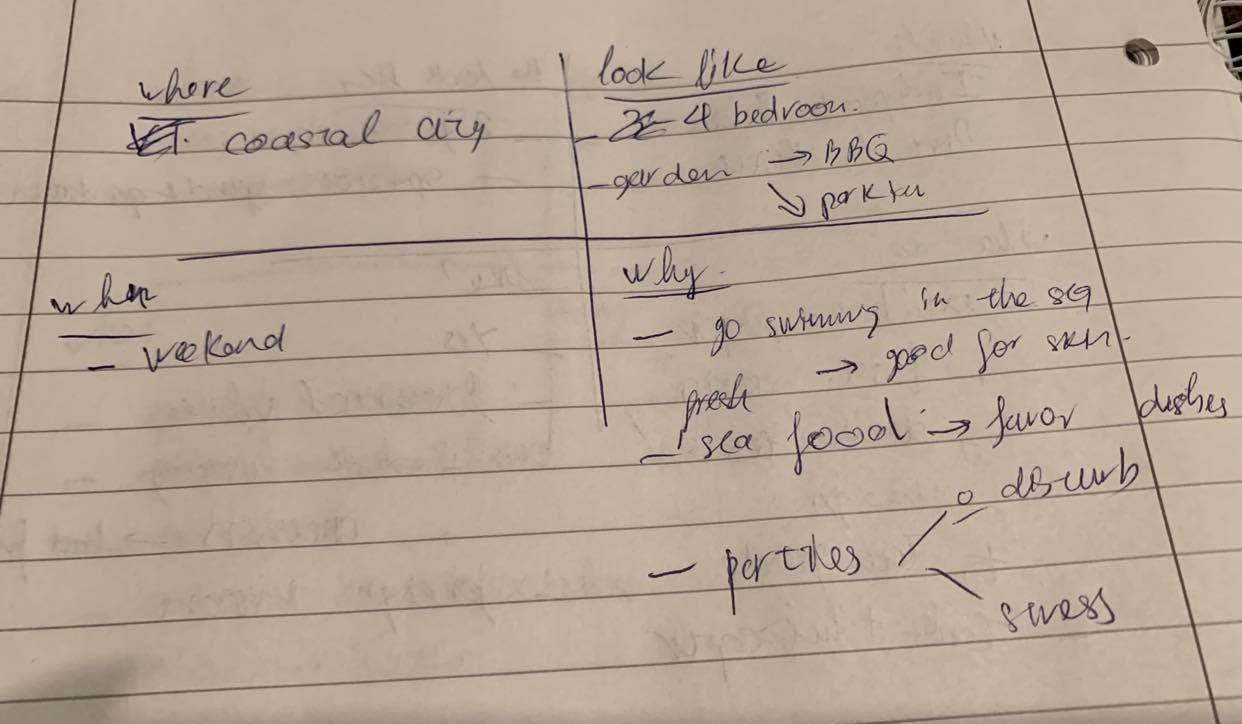 where
coastal city
look like
- 4 bedroom.
- garden → BBQ
↘
when
- weekend
why.
- go swimming in the sea
→ good for skin.
fresh
- sea food → favor dishes
- parties
0 disturb
stress